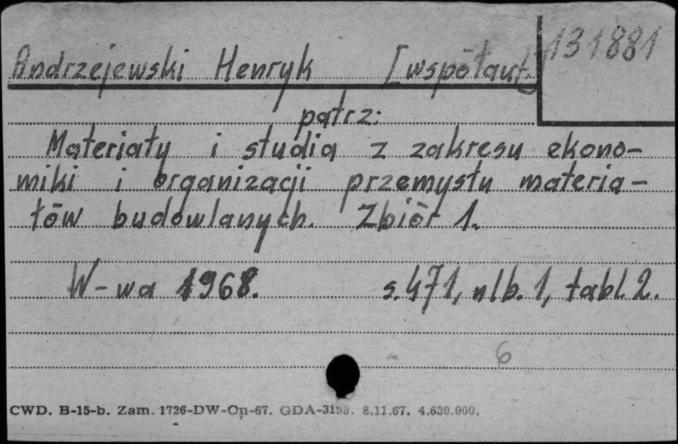 131881
Andrzejewski Henryk [współaut.]
patrz:
Materiały i studia z zakresu ekono-
miki i organizacji przemysłu materia-
łów budowlanych. Zbiór 1.
W-wa 1968. s. 471, nlb. 1, tabl 2.
6
CWD. B-15-b. Zam. 1726-DW-Op-67. GDA-3193. 8.11.67. 4.630.000.